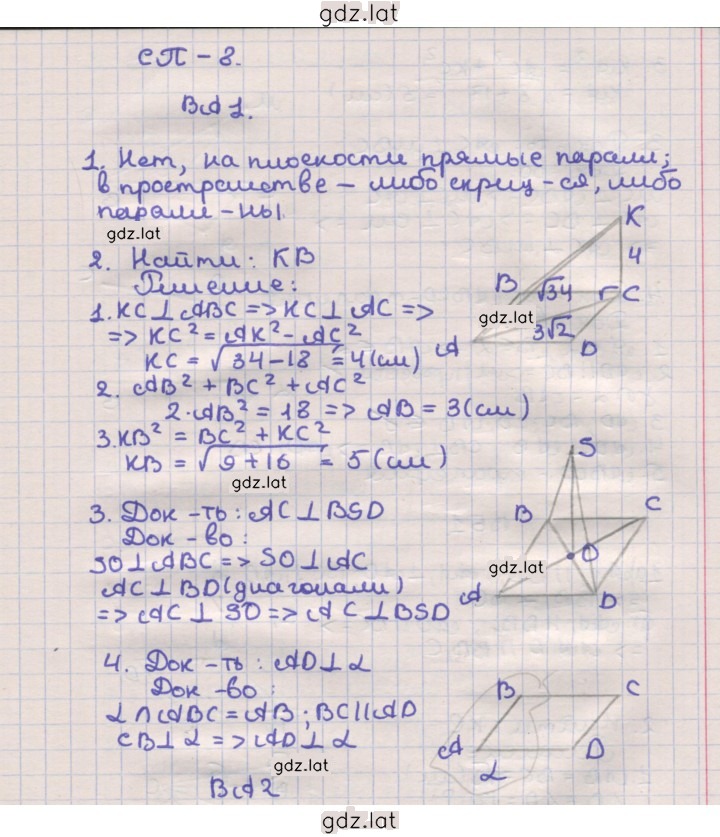 gdz.lat
СП - 8.
ВА 1.
1. Нет, на плоскости прямые паралл;
в пространстве - либо скрещ-ся, либо
паралл-ны.
gdz.lat
2. Найти: KB
Решение:
1. KC⊥ABC => KC⊥AC =>
=> KC² = AK² - AC²
KC = √34-18 = 4(см)
2. AB² + BC² + AC²
2·AB² = 18 => AB = 3(см)
3. KB² = BC² + KC²
KB = √9+16 = 5(см)
K
4
B
√34
C
gdz.lat
3√2
A
D
gdz.lat
3. Док-ть: AC⊥BSD
Док-во:
SO⊥ABC => SO⊥AC
AC⊥BD(диагонали)
=> AC⊥SO => AC⊥BSD
S
B
C
O
gdz.lat
A
D
4. Док-ть: AD⊥α
Док-во:
α∩ABC = AB; BC||AD
CB⊥α => AD⊥α
B
C
A
D
α
gdz.lat
ВА 2
gdz.lat